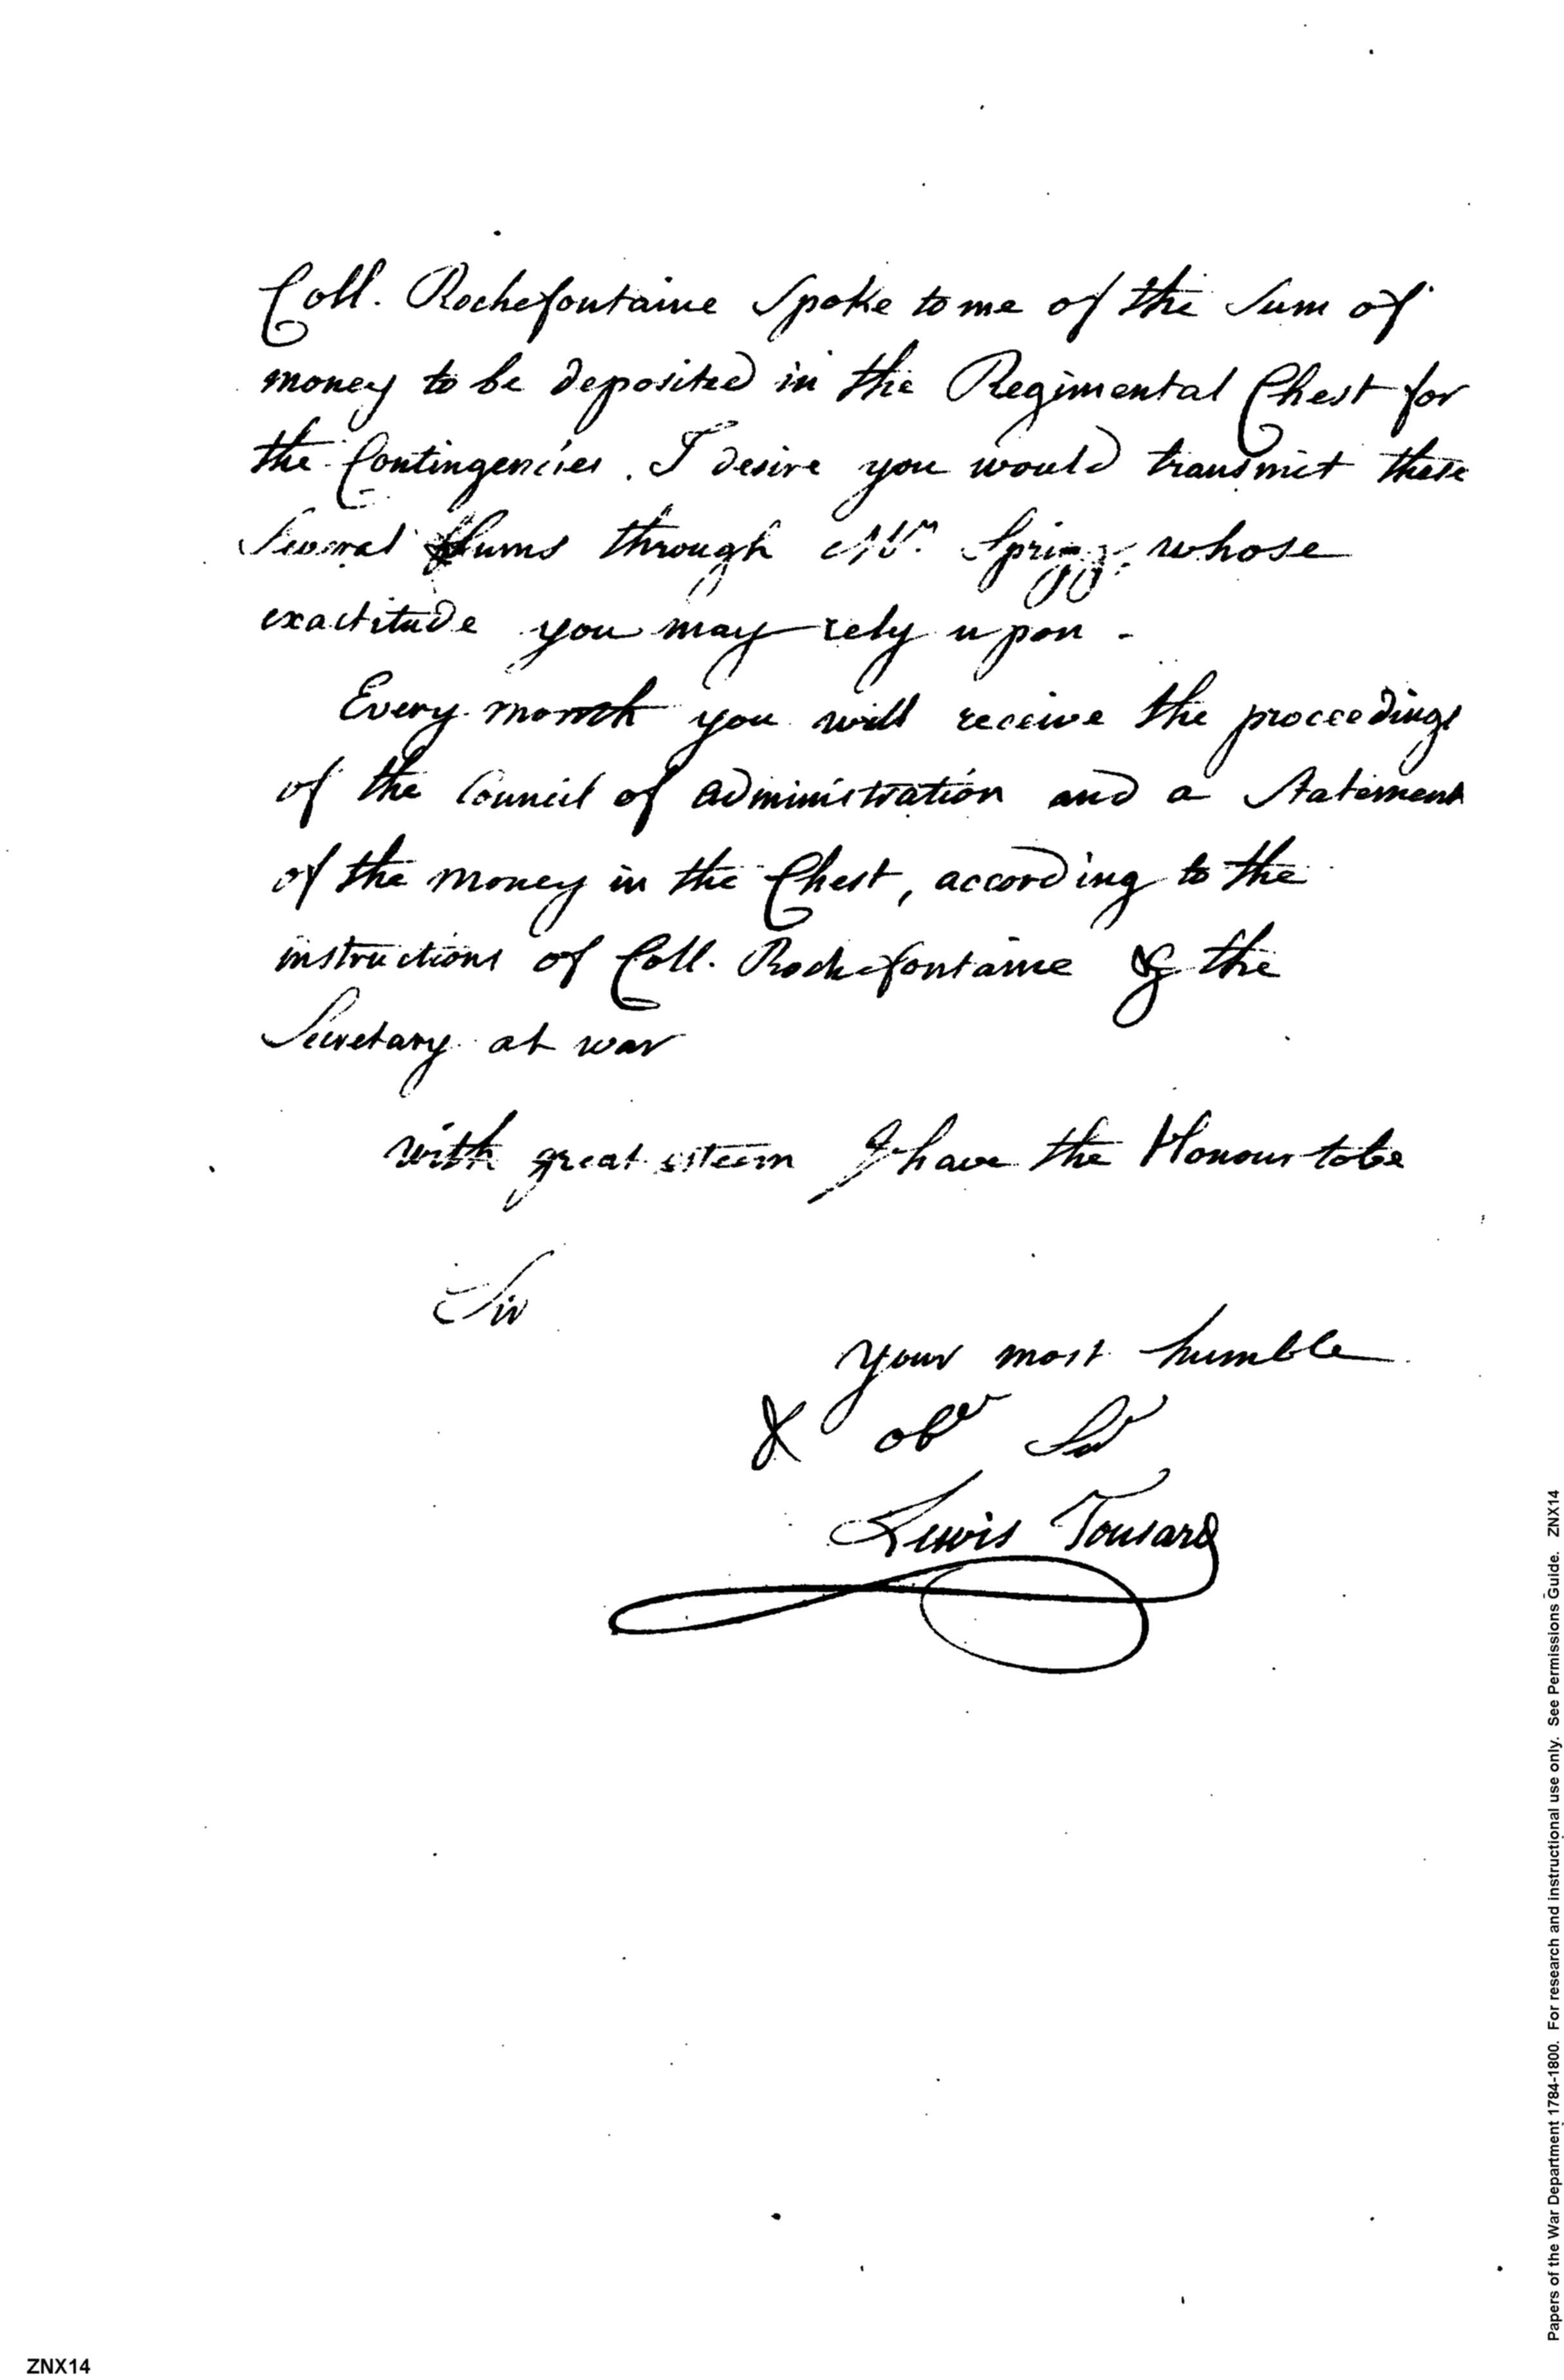 Coll. Rochefontaine Spoke to me of the Sum of
money to be deposited in the Regimental Chest for
the Contingencies. I desire you would transmit these
Several Sums through Mr. Sprigg, whose
exactitude you may rely upon -
Every month you will receive the proceedings
of the Council of administration and a Statement
of the money in the Chest, according to the
instructions of Coll. Rochefontaine & the
Secretary at war
with great esteem I have the Honour to be
Sir
your most humble
& obt Sert
Lewis Tousard
Papers of the War Department 1784-1800. For research and instructional use only. See Permissions Guide. ZNX14
ZNX14